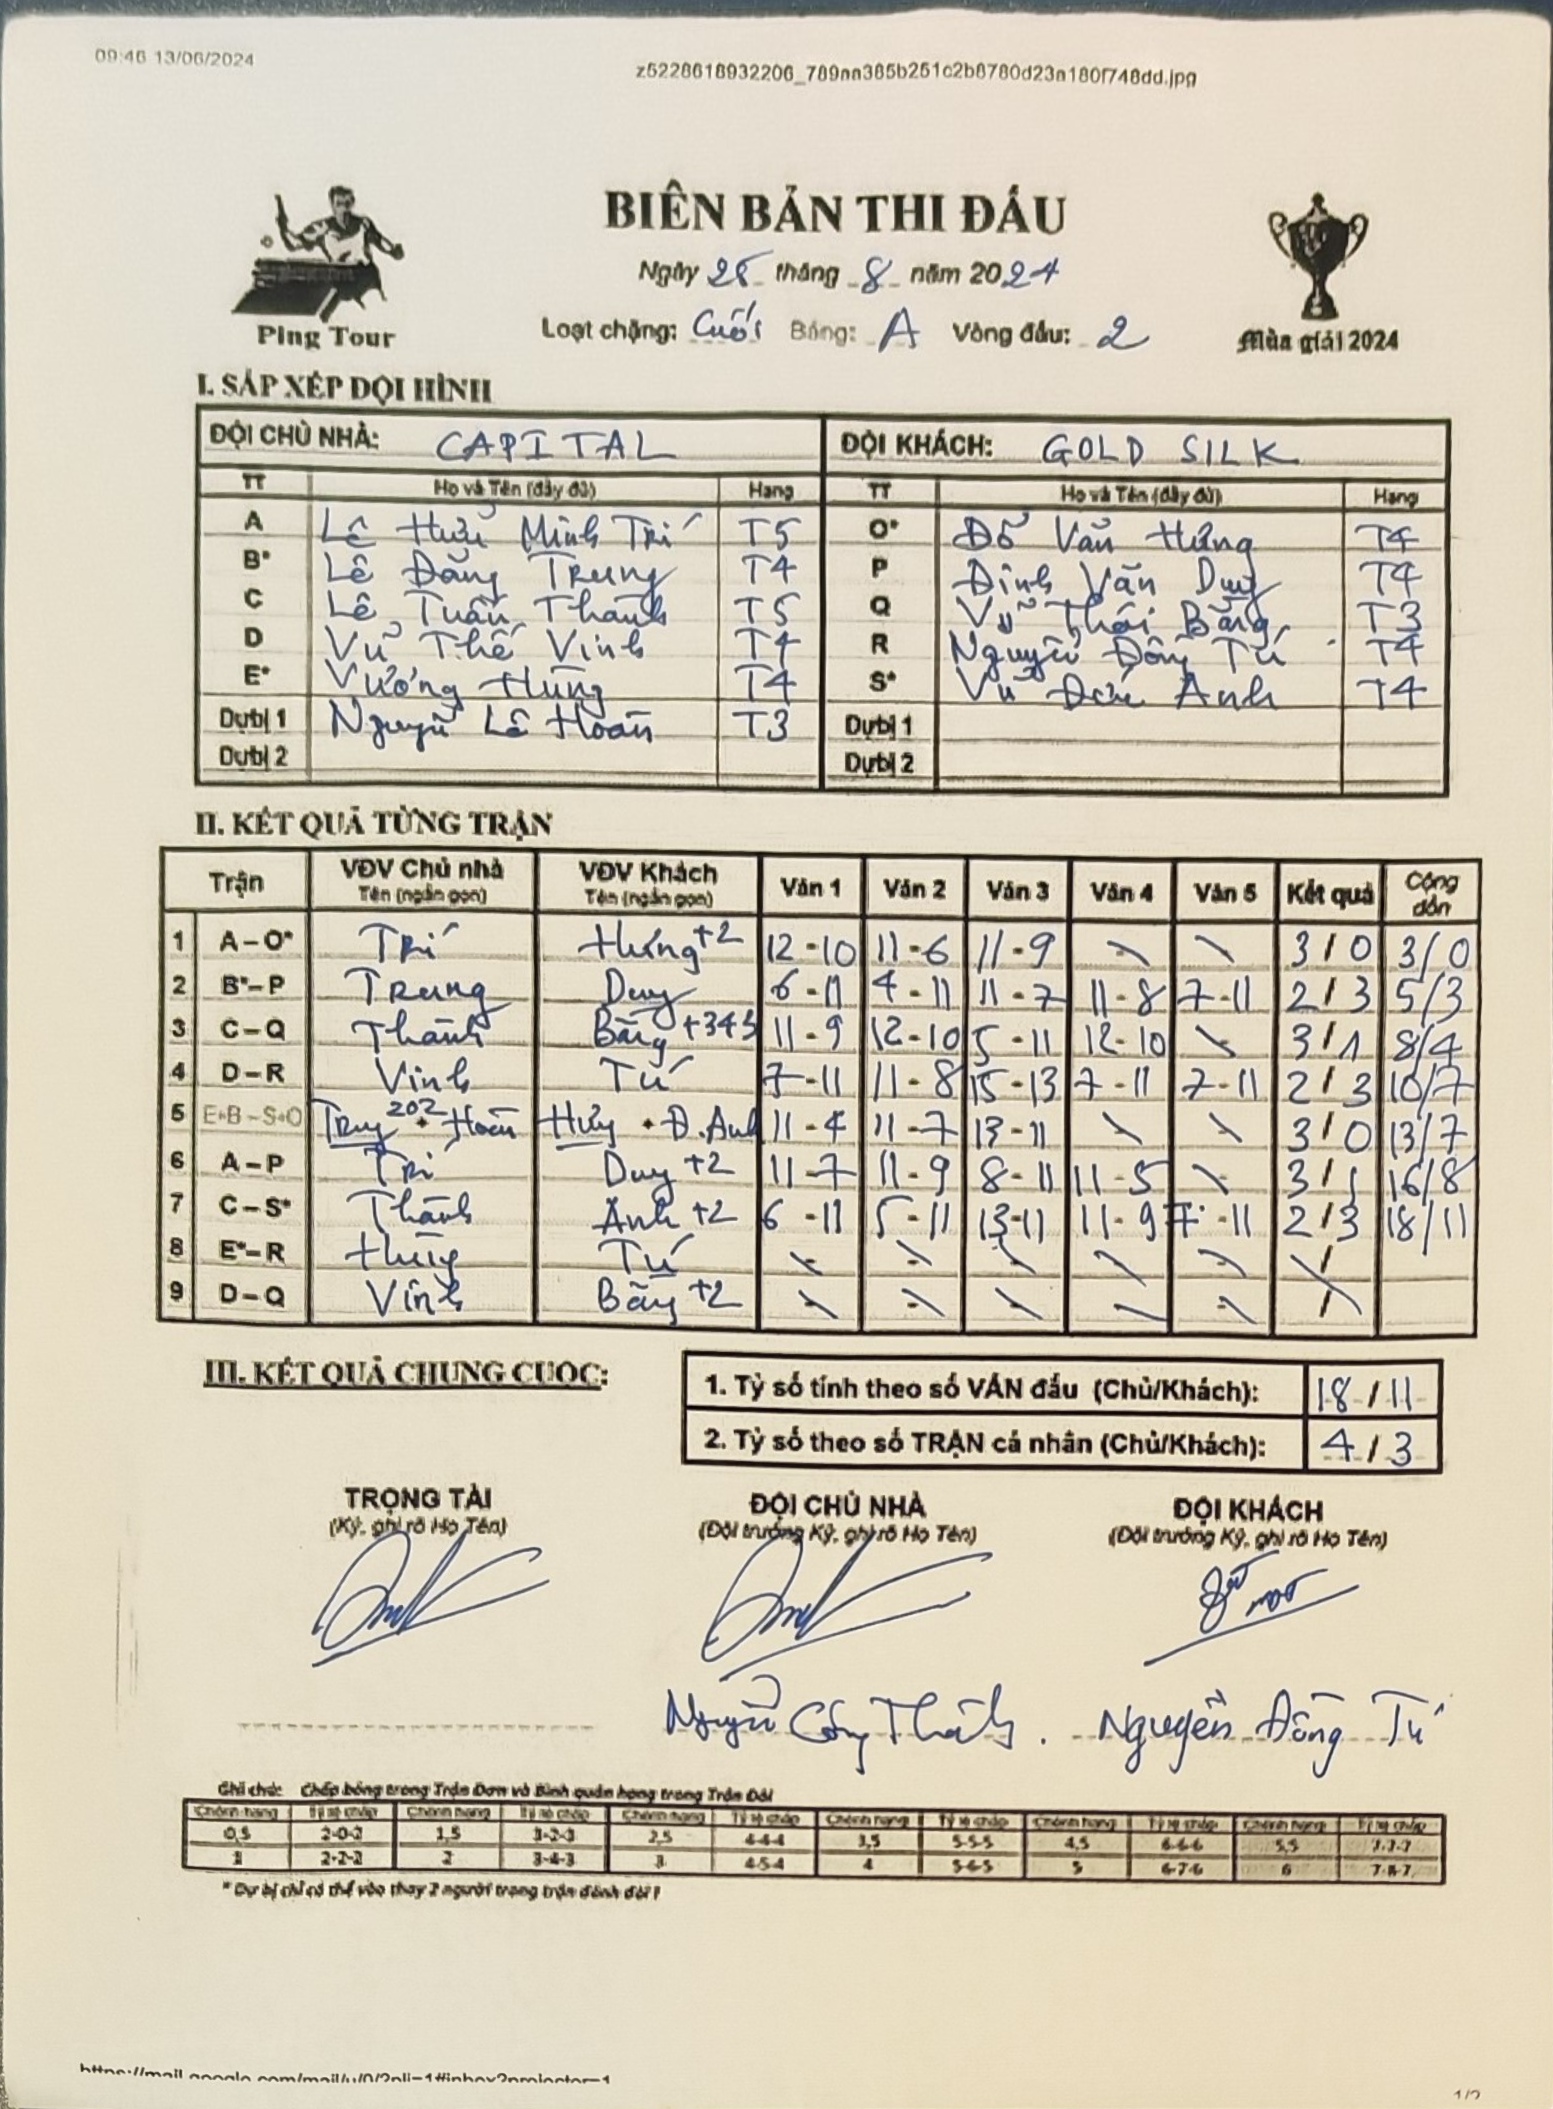 09:46 13/06/2024
z5228618932206_789aa385b251c2b8780d23a180f748dd.jpg
BIÊN BẢN THI ĐẤU
Ngày 25 tháng 8 năm 2024
Ping Tour
Loạt chặng: Cuối Bảng: A Vòng đấu: 2
Mùa giải 2024
I. SẮP XẾP ĐỘI HÌNH
ĐỘI CHỦ NHÀ: CAPITAL ĐỘI KHÁCH: GOLD SILK
TT Họ và Tên (đầy đủ) Hạng TT Họ và Tên (đầy đủ) Hạng
A Lê Hữu Minh Trí T5 O* Đỗ Văn Hưng T4
B* Lê Đăng Trung T4 P Đinh Văn Duy T4
C Lê Tuấn Thành T5 Q Vũ Thái Bằng T3
D Vũ Thế Vinh T4 R Nguyễn Đồng Tú T4
E* Vương Hùng T4 S* Vũ Đức Anh T4
Dự bị 1 Nguyễn Lê Hoàn T3 Dự bị 1
Dự bị 2 Dự bị 2
II. KẾT QUẢ TỪNG TRẬN
Trận VĐV Chủ nhà Tên (ngắn gọn) VĐV Khách Tên (ngắn gọn) Ván 1 Ván 2 Ván 3 Ván 4 Ván 5 Kết quả Cộng dồn
1 A – O* Trí Hưng +2 12-10 11-6 11-9 \ \ 3/0 3/0
2 B* – P Trung Duy 6-11 4-11 11-7 11-8 7-11 2/3 5/3
3 C – Q Thành Bằng +343 11-9 12-10 5-11 12-10 \ 3/1 8/4
4 D – R Vinh Tú 7-11 11-8 15-13 7-11 7-11 2/3 10/7
5 E+B – S+O Trung 202 + Hoàn Hưng + Đ.Anh 11-4 11-7 13-11 \ \ 3/0 13/7
6 A – P Trí Duy +2 11-7 11-9 8-11 11-5 \ 3/1 16/8
7 C – S* Thành Anh +2 6-11 5-11 13-11 11-9 7-11 2/3 18/11
8 E* – R Hùng Tú \ \ \ \ \ /
9 D – Q Vinh Bằng +2 \ \ \ \ \ /
III. KẾT QUẢ CHUNG CUỘC:
1. Tỷ số tính theo số VÁN đấu (Chủ/Khách): 18/11
2. Tỷ số theo số TRẬN cá nhân (Chủ/Khách): 4/3
TRỌNG TÀI ĐỘI CHỦ NHÀ ĐỘI KHÁCH
(Ký, ghi rõ Họ Tên) (Đội trưởng Ký, ghi rõ Họ Tên) (Đội trưởng Ký, ghi rõ Họ Tên)
Nguyễn Công Thành. Nguyễn Đồng Tú
Ghi chú: Chấp bóng trong Trận Đơn và Bình quân hạng trong Trận Đôi
Chênh hạng Tỷ số chấp Chênh hạng Tỷ số chấp Chênh hạng Tỷ lệ chấp Chênh hạng Tỷ lệ chấp Chênh hạng Tỷ lệ chấp Chênh hạng Tỷ lệ chấp
0,5 2-0-2 1,5 3-2-3 2,5 4-4-4 3,5 5-5-5 4,5 6-6-6 5,5 7-7-7
1 2-2-2 2 3-4-3 3 4-5-4 4 5-6-5 5 6-7-6 6 7-8-7
* Dự bị chỉ có thể vào thay 2 người trong trận đánh đôi !
https://mail.google.com/mail/u/0/?pli=1#inbox?projector=1
1/2